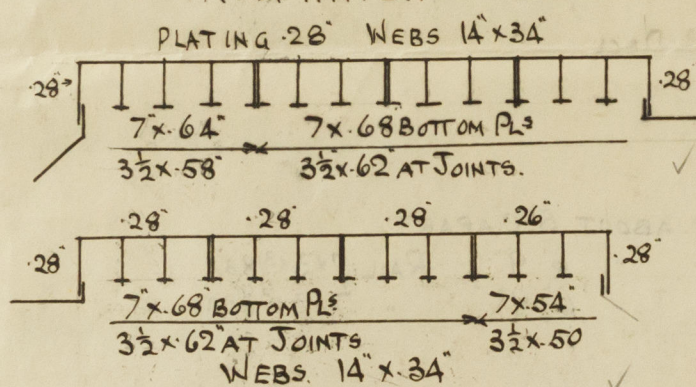 PLATING .28" WEBS 14" x .34"
.28" .28
7" x .64" 7 x .68 BOTTOM PLS
3½ x .58" 3½ x .62" AT JOINTS.
.28" .28" .28" .26"
.28" .28"
7" x .68" BOTTOM PLS 7 x .54"
3½ x .62" AT JOINTS 3½ x .50
WEBS. 14" x .34"